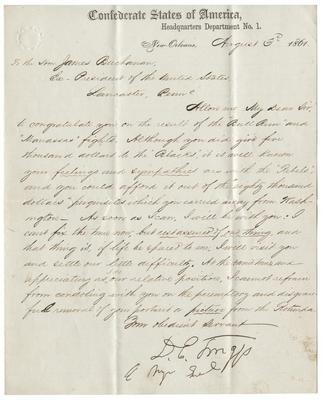 Confederate States of America,
Headquarters Department No. 1.
New Orleans, August 5th 1861
To the Hon. James Buchanan,
Ex-President of the United States,
Lancaster, Penn.
Allow me, My dear Sir,
to congratulate you on the result of the "Bull Run" and
"Manassas" fights. Although you did give five
thousand dollars to the Blacks, it is well known
your feelings and sympathies are with the "Rebels",
and you could afford it out of the eighty thousand
dollars' perquisites which you carried away from Wash-
ington – As soon as I can, I will be with you: I
can't fix the time now, but rest assured of one thing, and
that thing is, if life be spared to me, I will visit you
and settle our little difficulty. As
appreciating our relative position, I cannot refrain
from condoling with you on the peremptory and disgrace-
ful removal of your portrait or picture from the Rotunda
Your obedient servant
D. E. Twiggs